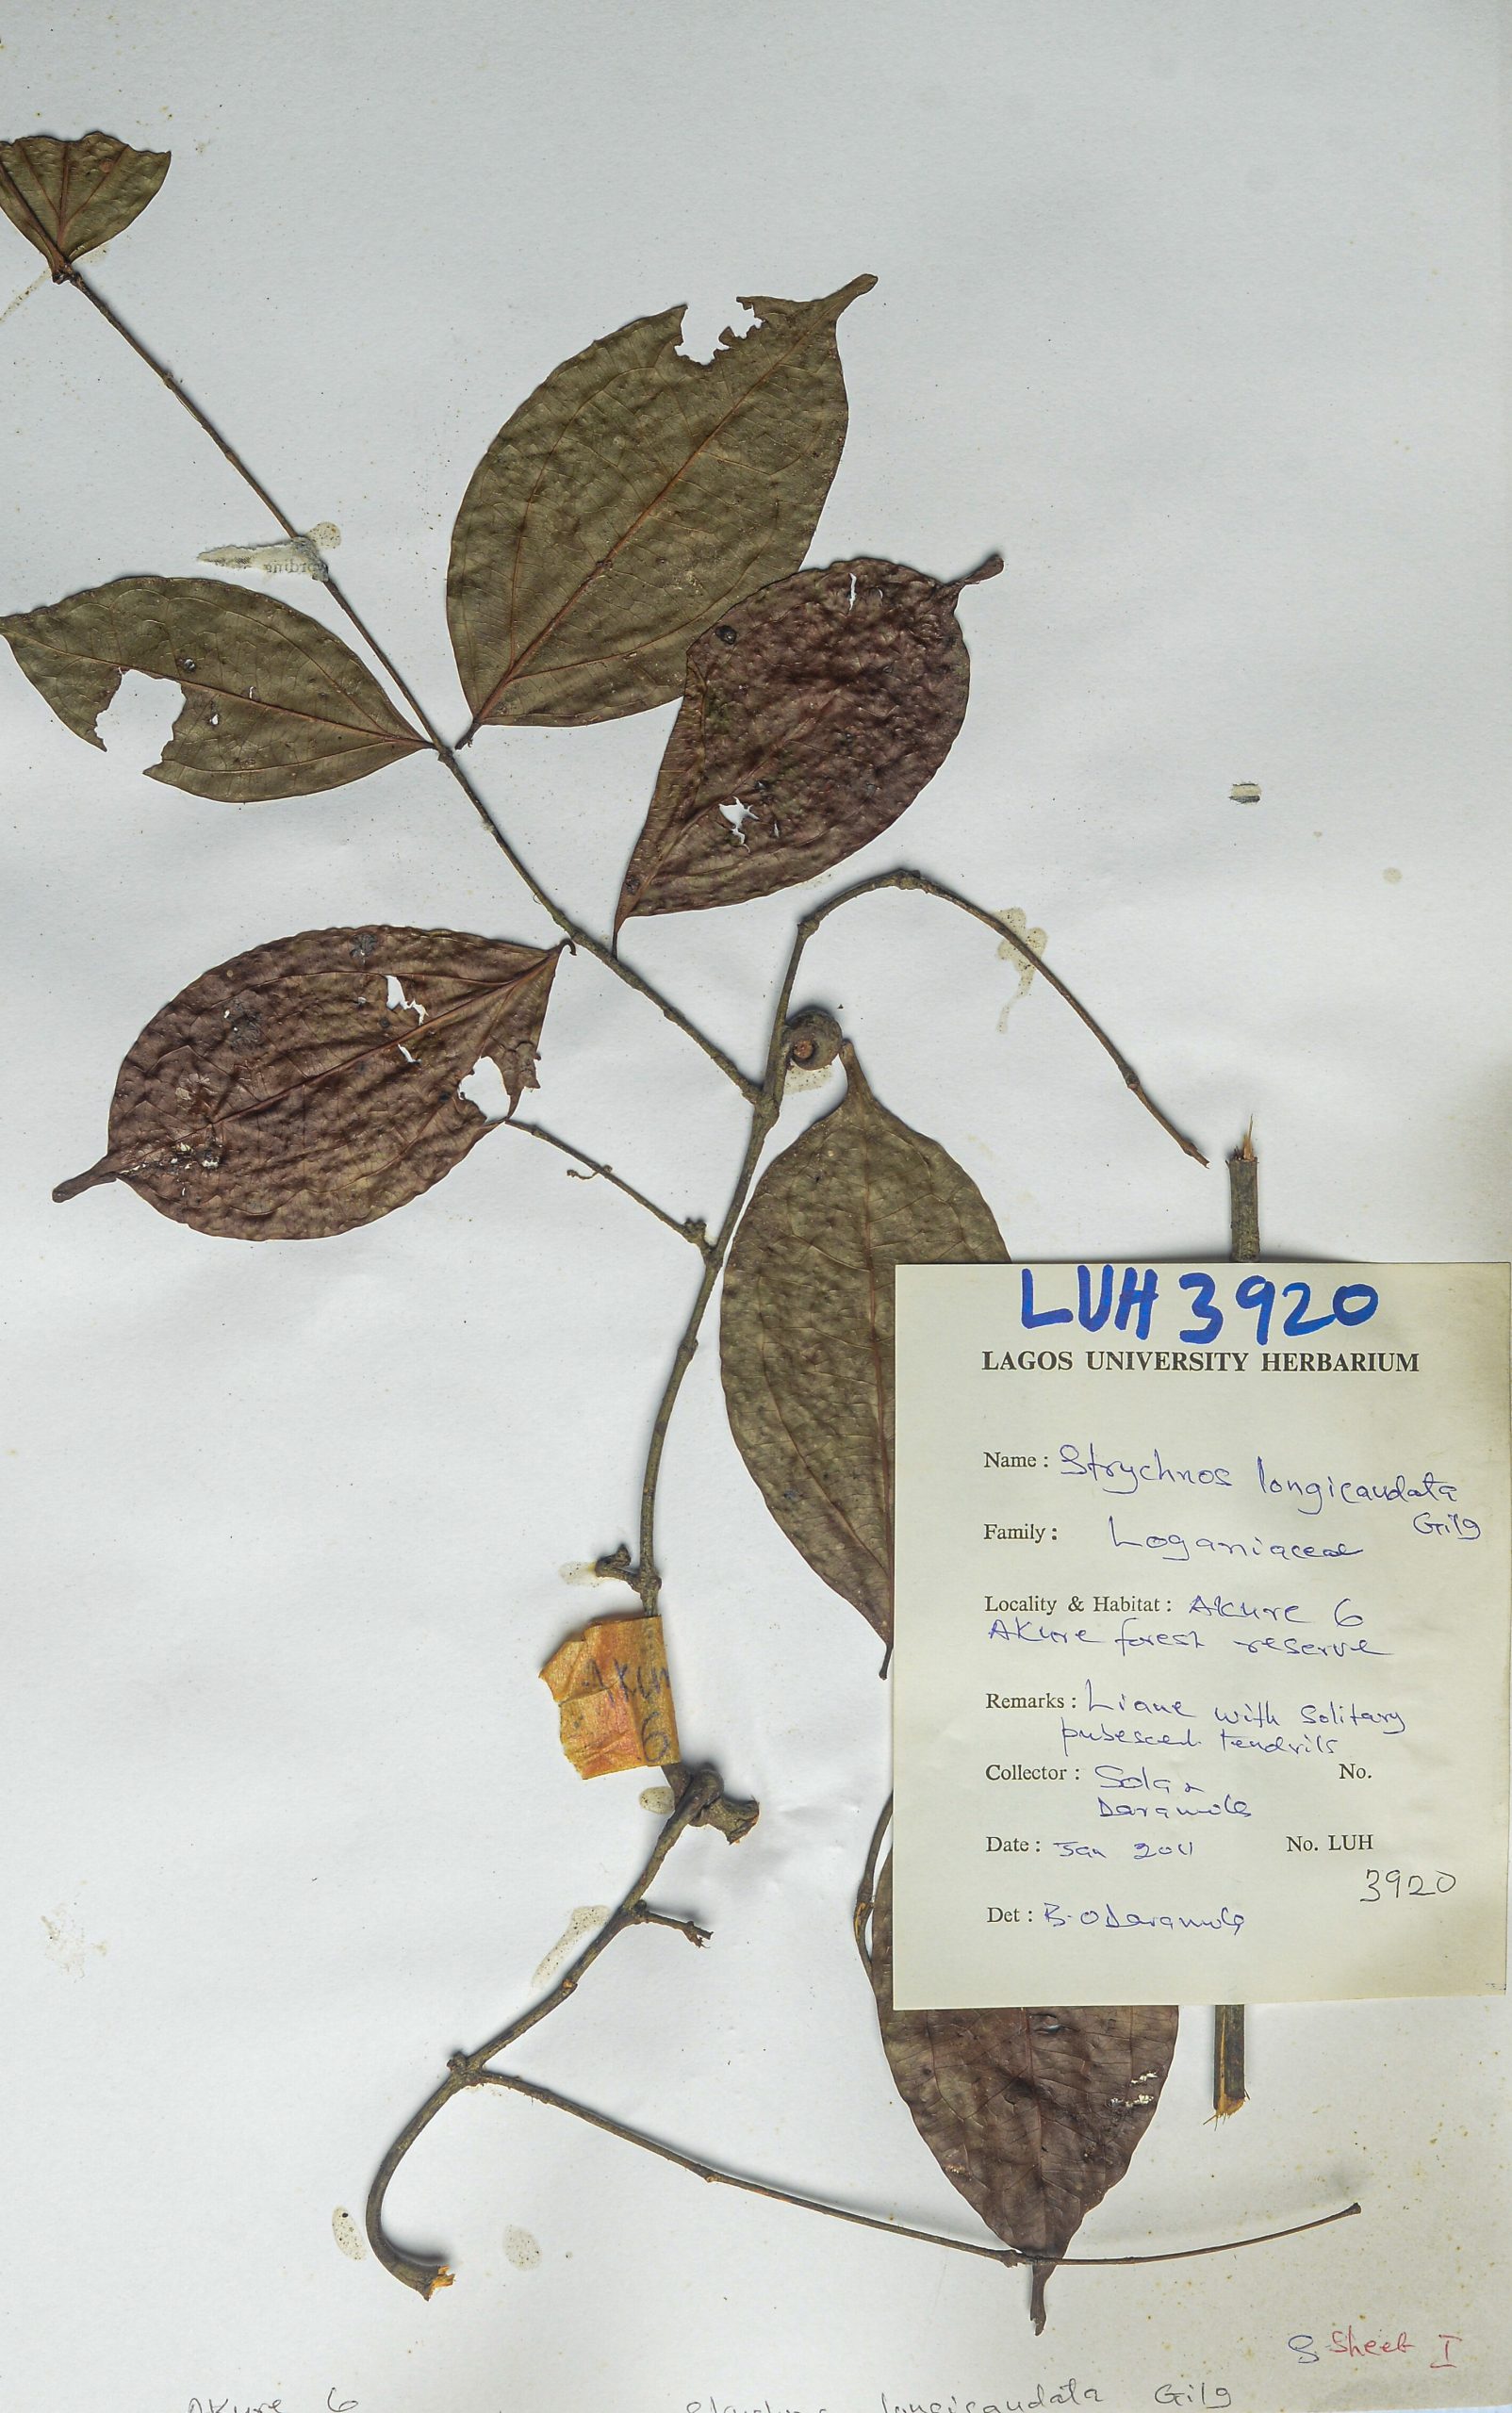 Akure
6
LUH 3920
LAGOS UNIVERSITY HERBARIUM
Name: Strychnos longicaudata
Gilg
Family: Loganiaceae
Locality & Habitat: Akure 6
Akure forest reserve
Remarks: Liane with solitary
pubescent tendrils
Collector: Sola & No.
Daramola
Date: Jan 2011 No. LUH
3920
Det: B. O Daramola
Sheet I
Akure 6 longicaudata Gilg